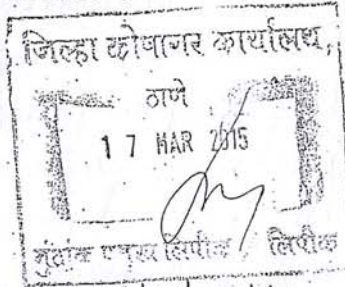 जिल्हा कोषागार कार्यालय,
ठाणे
17 MAR 2015
मुद्रांक प्रमुख लिपीक / लिपीक